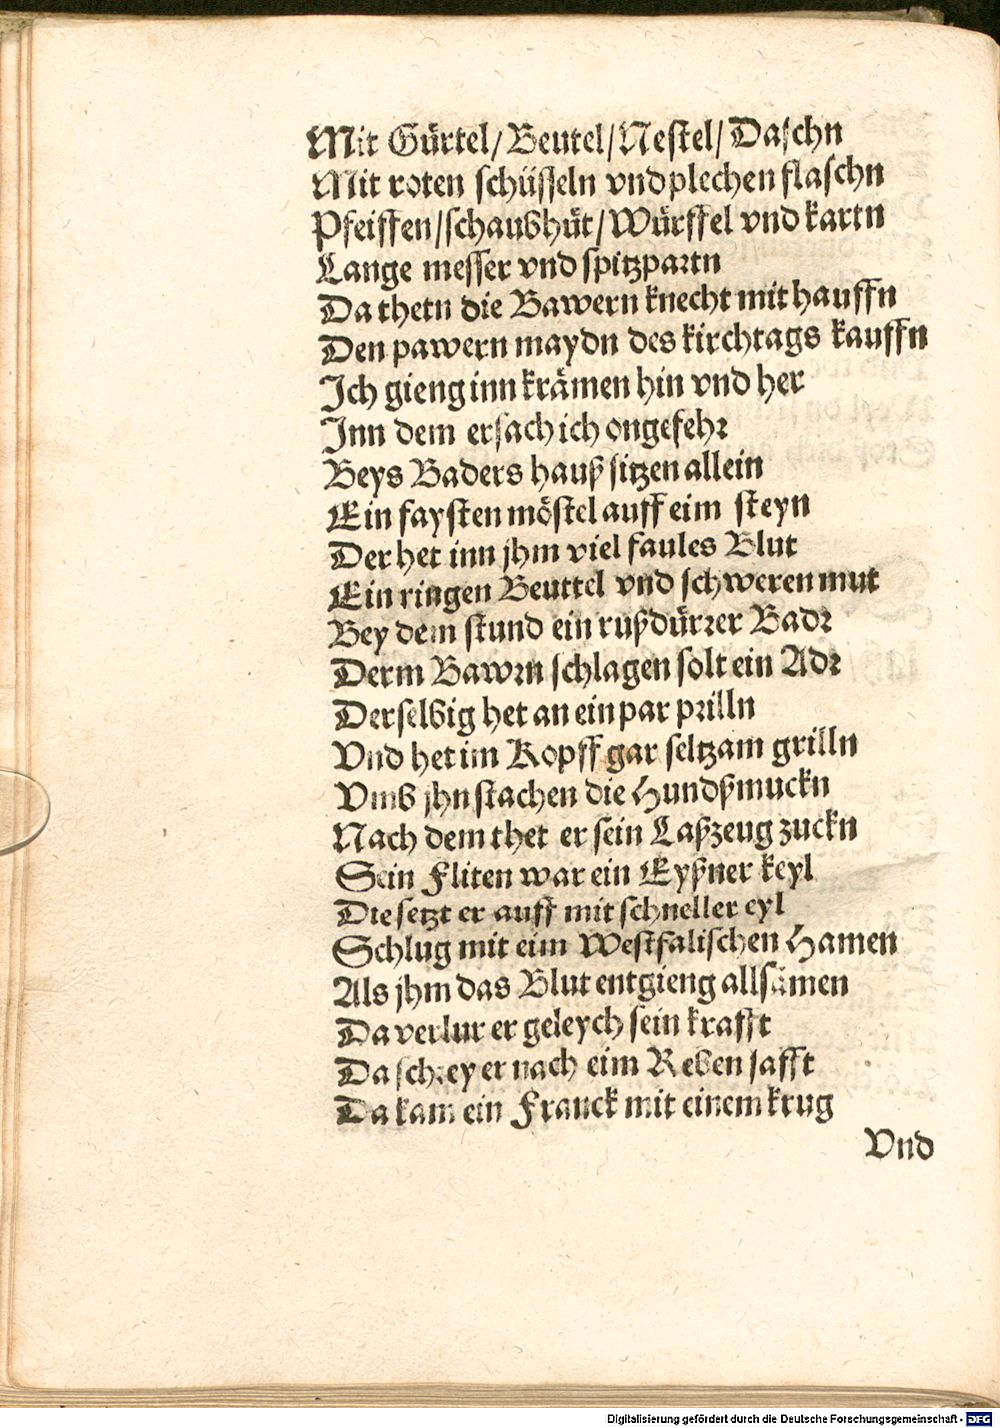 Mit Gürtel/Beutel/Nestel/Daschn
Mit roten schüsseln vnd plechen flaschn
Pfeiffen/schaubhüt/Würffel vnd kartn
Lange messer vnd spitzpartn
Da thetn die Bawern knecht mit hauffn
Den pawern maydn des kirchtags kauffn
Ich gieng inn krämen hin vnd her
Inn dem ersach ich ongefehr
Beys Baders hauß sitzen allein
Ein faysten möstel auff eim steyn
Der het inn jhm viel faules Blut
Ein ringen Beuttel vnd schweren mut
Bey dem stund ein rußdürrer Badr
Derm Bawrn schlagen solt ein Adr
Derselbig het an ein par prilln
Vnd het im Kopff gar seltzam grilln
Vmb jhn stachen die Hundßmuckn
Nach dem thet er sein Laßzeug zuckn
Sein Fliten war ein Eyßner keyl
Die setzt er auff mit schneller eyl
Schlug mit eim Westfalischen Hamen
Als jhm das Blut entgieng allsämen
Da verlur er geleych sein krafft
Da schrey er nach eim Reben safft
Da kam ein Franck mit einem krug
Vnd
Digitalisierung gefördert durch die Deutsche Forschungsgemeinschaft - DFG